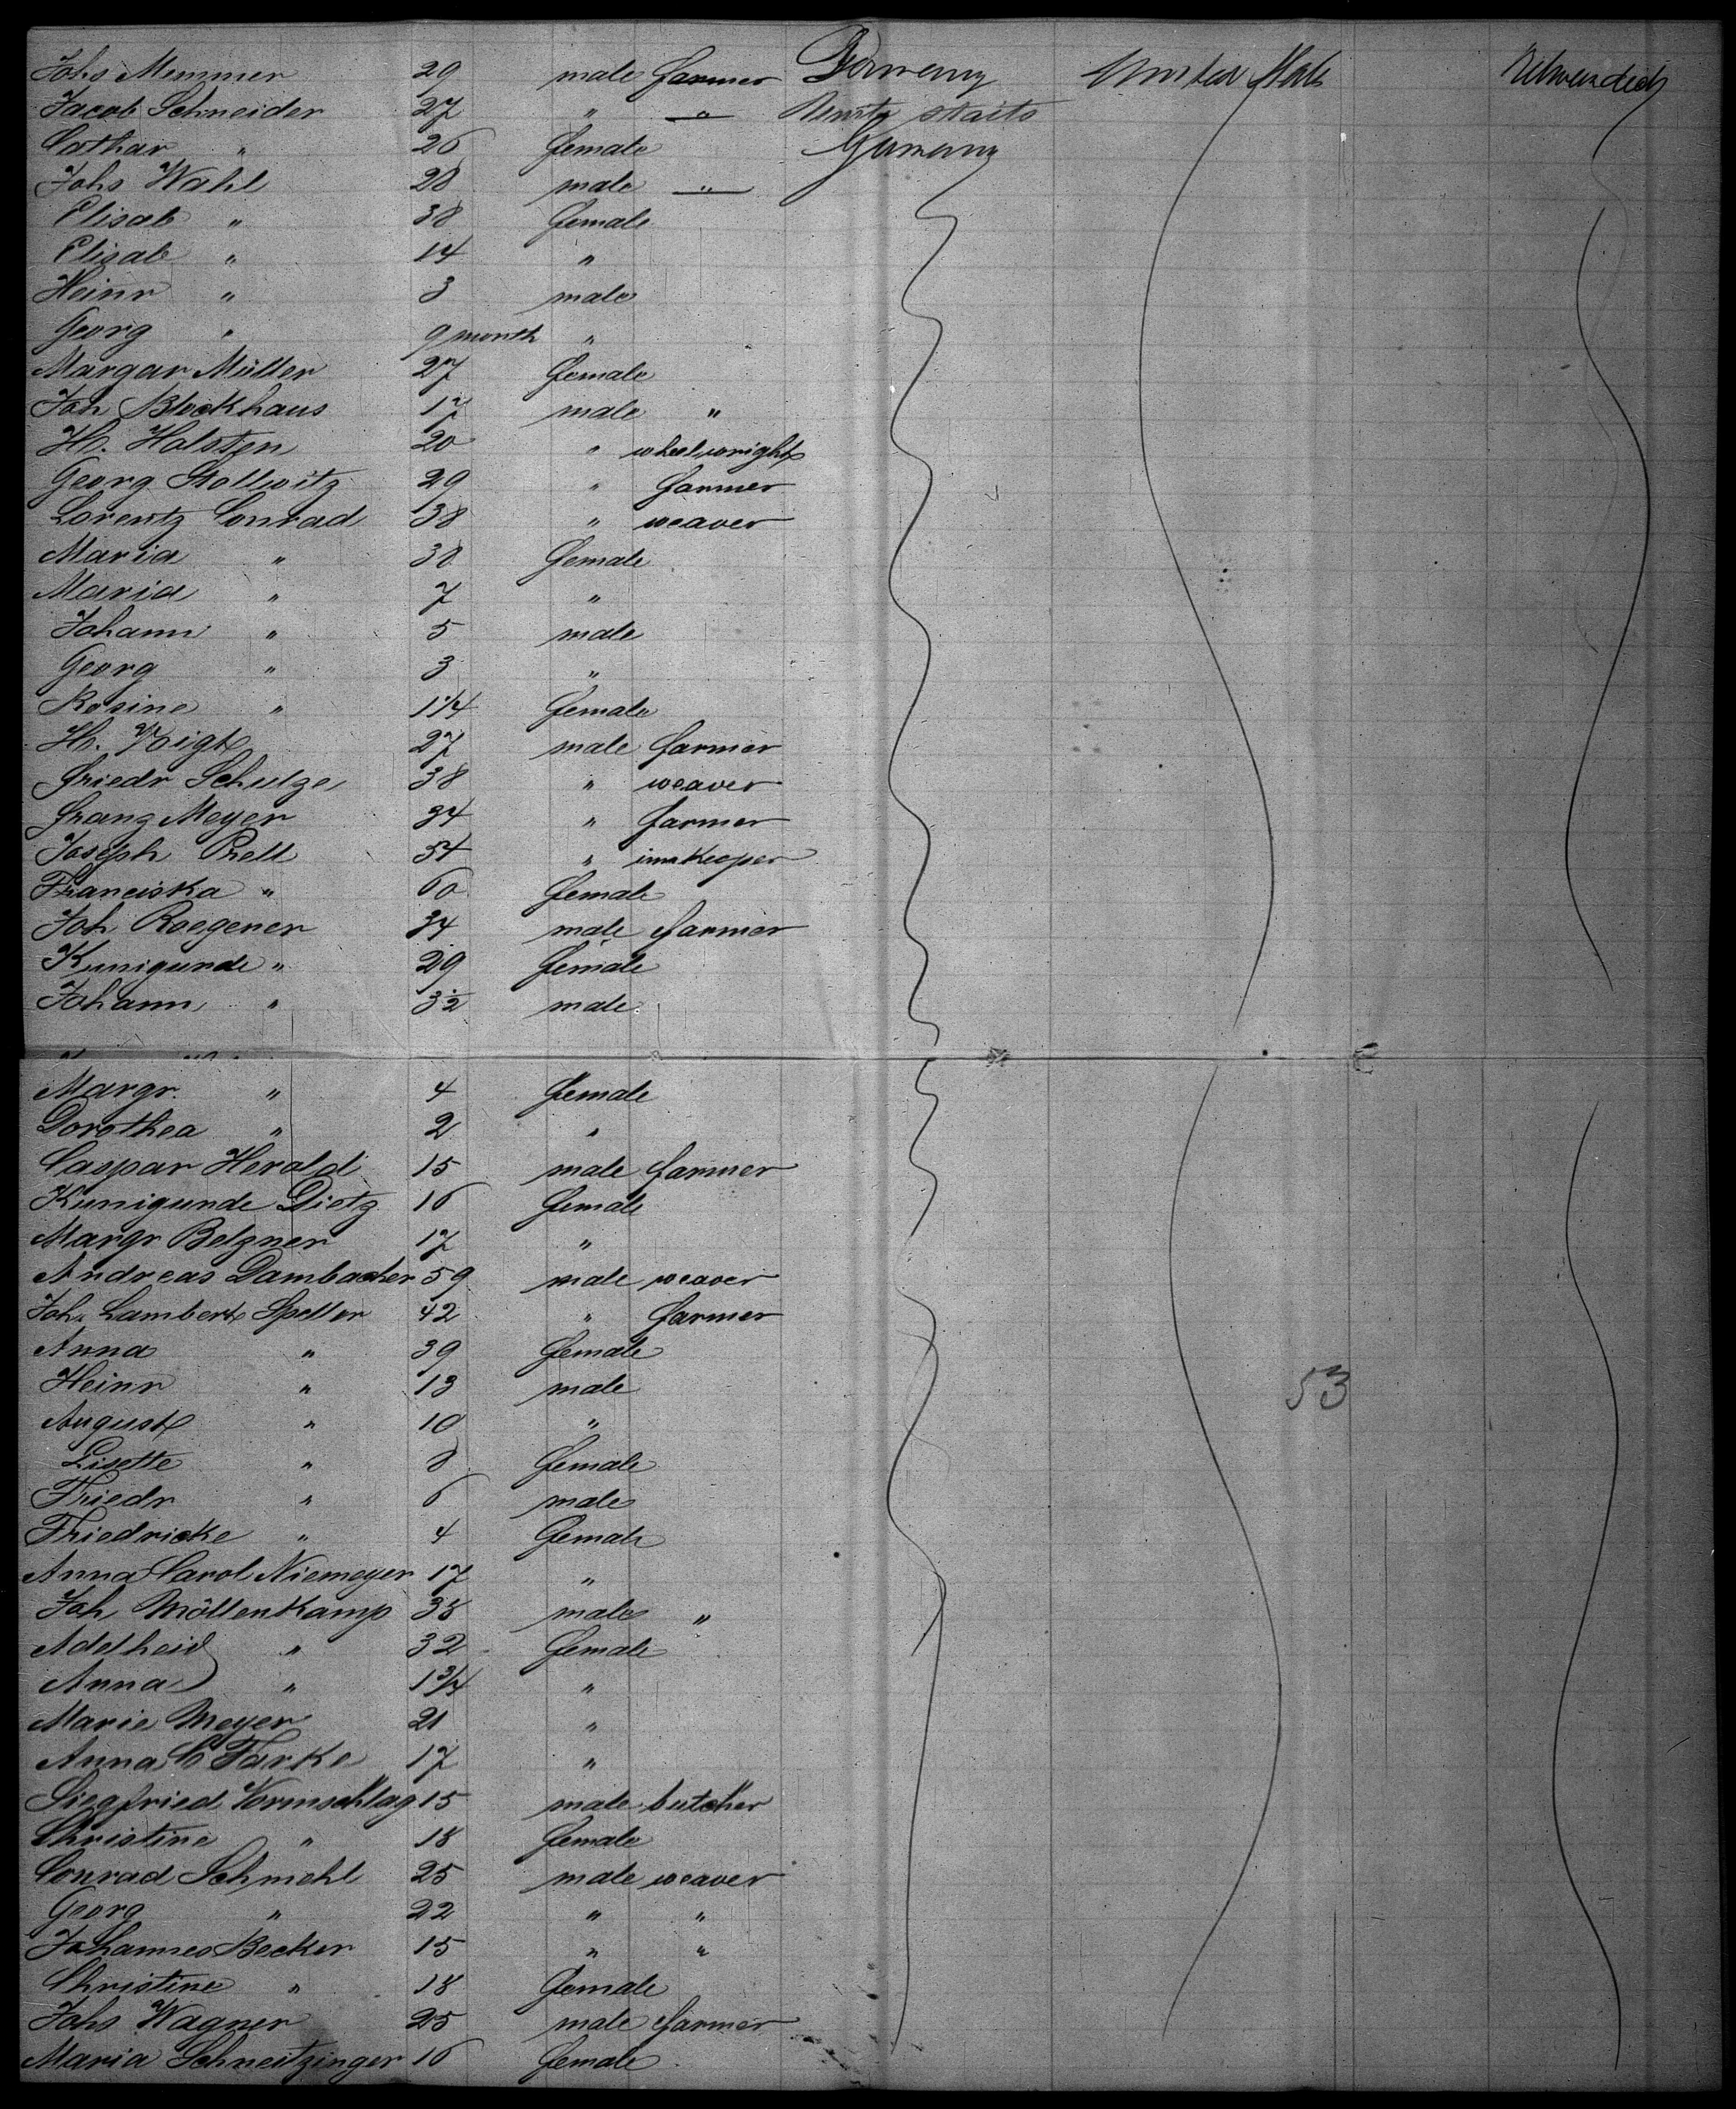 Johs Memmer 29 male farmer Germany United States
Jacob Schneider 27 " " staits
Cathar " 26 female Germany
Johs Wahl 28 male "
Elisab " 38 female
Elisab " 14 "
Heinr " 3 male
Georg " 9 month "
Margar Müller 27 female
Joh Blockhaus 17 male "
H. Holsten 20 " wheelwright
Georg Stollwitz 29 " farmer
Lorentz Conrad 38 " weaver
Maria " 38 female
Maria " 7 "
Johann " 5 male
Georg " 3 "
Rosine " 1 1/4 female
H. Voigt 27 male farmer
Friedr Schulze 38 " weaver
Franz Meyer 34 " farmer
Joseph Prell 54 " innkeeper
Franciska " 60 female
Joh Roegener 34 male farmer
Kunigunde " 29 female
Johann " 3 1/2 male
Margr. " 4 female
Dorothea " 2 "
Caspar Herold 15 male farmer
Kunigunde Dietz 16 female
Margr Belzner 17 "
Andreas Dambacher 59 male weaver
Joh. Lambert Speller 42 " farmer
Anna " 39 female
Heinr " 13 male
August " 10 "
Lisette " 8 female
Friedr " 6 male
Friedricke " 4 female
Anna Carol Niemeyer 17 "
Joh Möllenkamp 38 male "
Adelheid " 32 female
Anna " 1 3/4 "
Marie Meyer 21 "
Anna C Tarke 17 "
Siegfried Vormschlag 15 male butcher
Christine " 18 female
Conrad Schmehl 25 male weaver
Georg " 22 " "
Johannes Becker 15 " "
Christine " 18 female
Johs Wagner 25 male farmer
Maria Schneitzinger 16 female
53